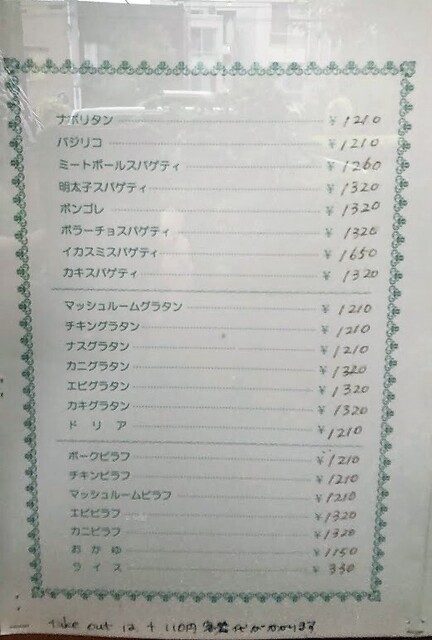 ナポリタン ¥1210
バジリコ ¥1210
ミートボールスパゲティ ¥1260
明太子スパゲティ ¥1320
ボンゴレ ¥1320
ボラーチョスパゲティ ¥1320
イカスミスパゲティ ¥1650
カキスパゲティ ¥1320
マッシュルームグラタン ¥1210
チキングラタン ¥1210
ナスグラタン ¥1210
カニグラタン ¥1320
エビグラタン ¥1320
カキグラタン ¥1320
ドリア ¥1210
ポークピラフ ¥1210
チキンピラフ ¥1210
マッシュルームピラフ ¥1210
エビピラフ ¥1320
カニピラフ ¥1320
おかゆ ¥1150
ライス ¥330
take out は + 110円 容器代がかかります